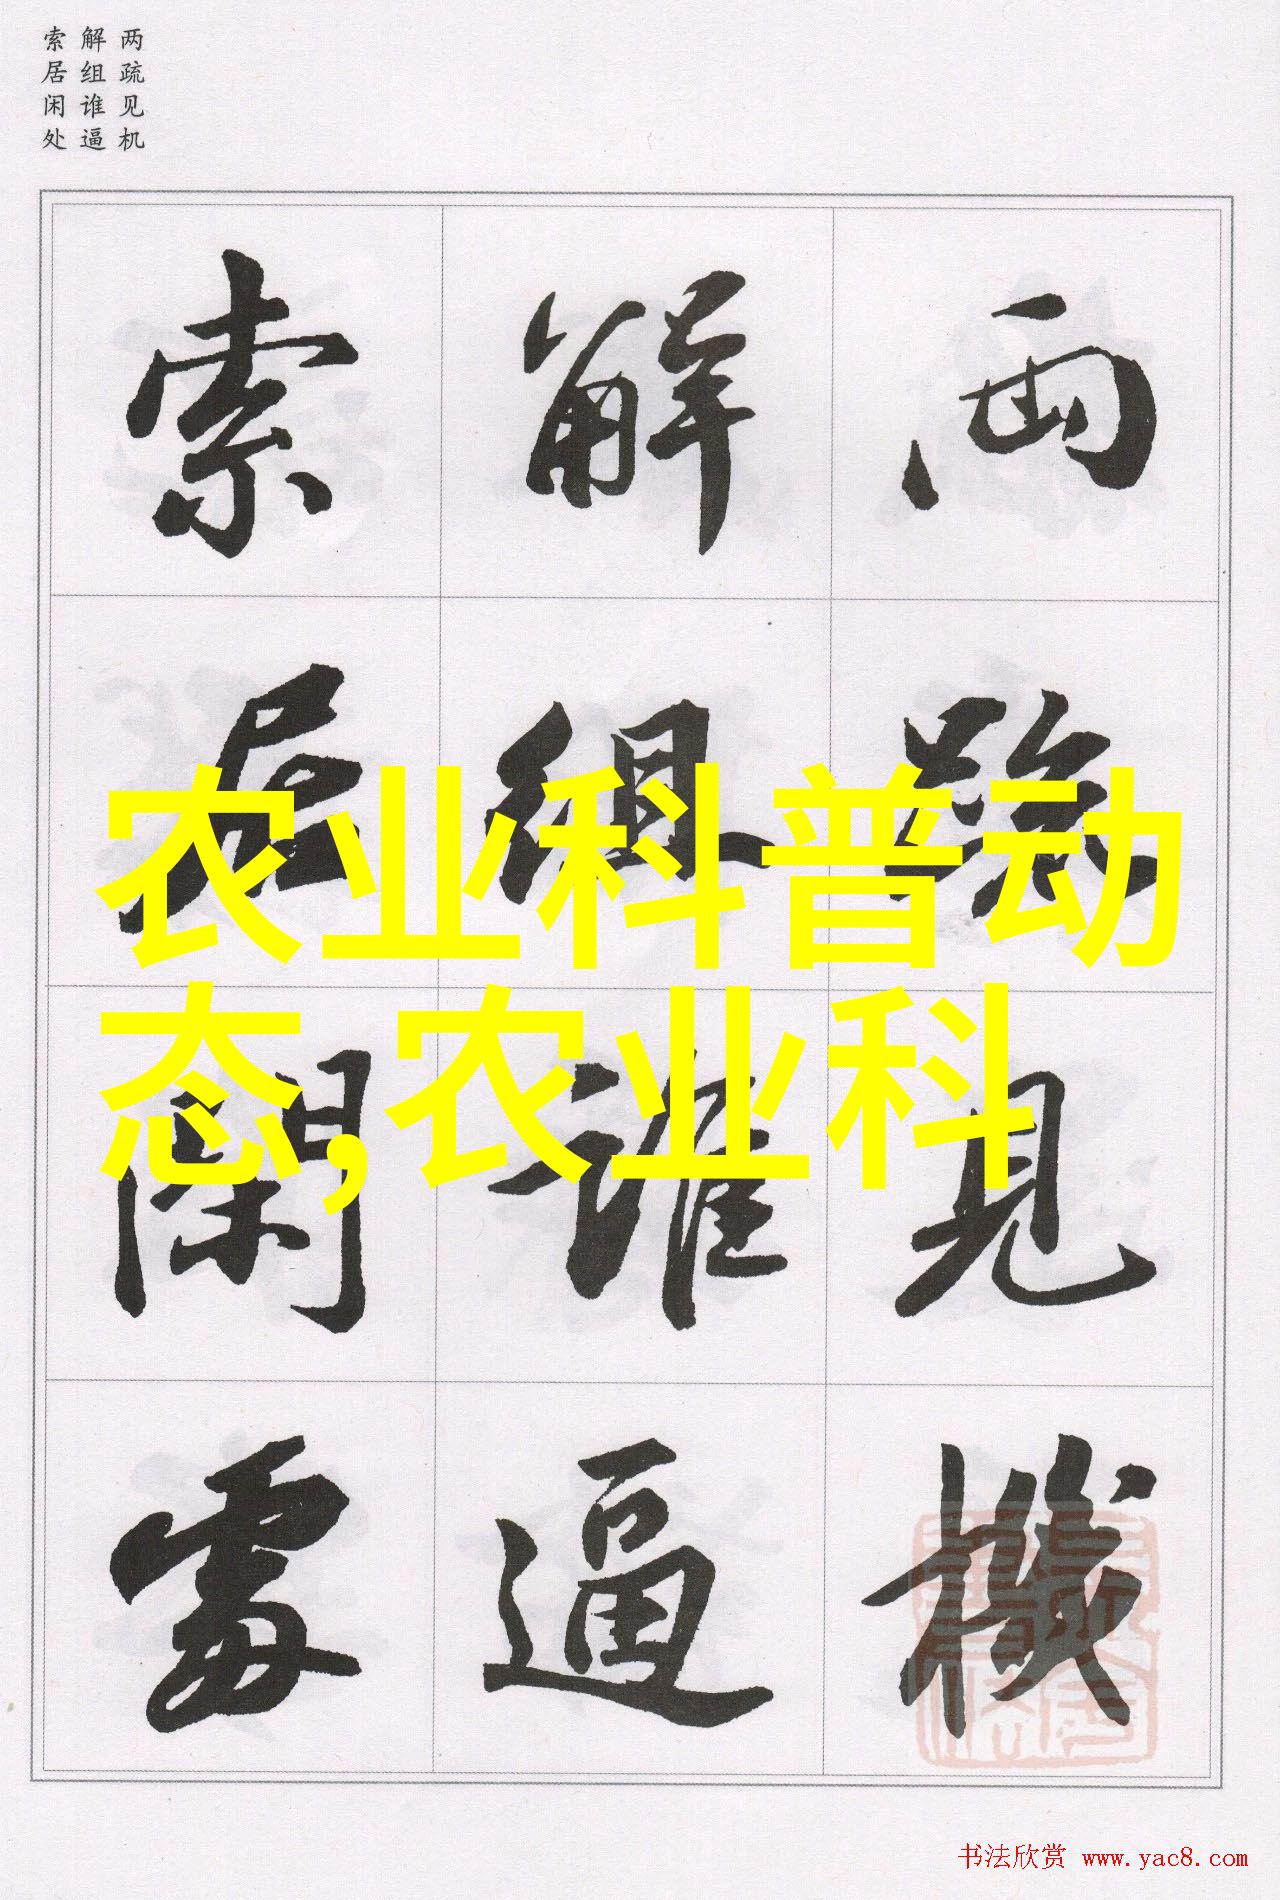 两疏见机
解组谁逼
索居闲处
两疏见機
解组谁逼
索居闲處
农业科普动
态,农业科
书法欣赏 www.yac8.com